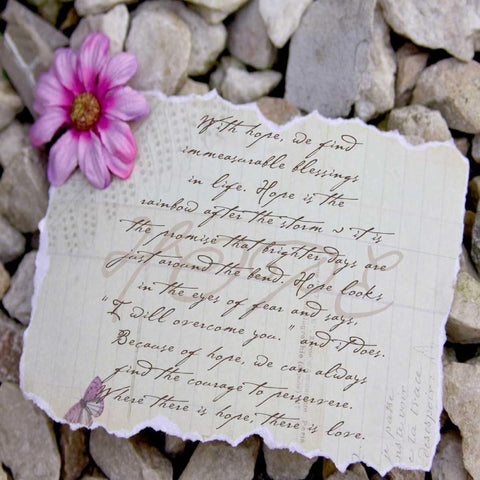 With hope, we find
immeasurable blessings
in life. Hope is the
rainbow after the storm ~ it is
the promise that brighter days are
just around the bend. Hope looks
in the eyes of fear and says,
"I will overcome you," and it does.
Because of hope, we can always
find the courage to persevere.
Where there is hope, there is love.
hope